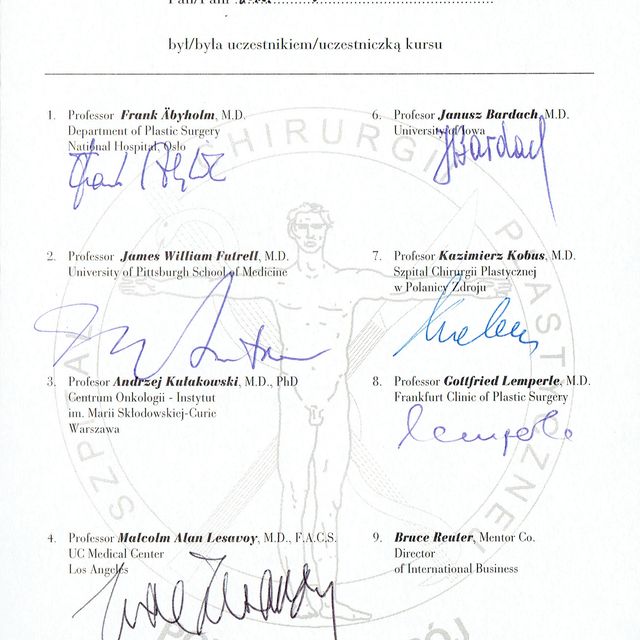 był/była uczestnikiem/uczestniczką kursu
1. Professor Frank Åbyholm, M.D.
Department of Plastic Surgery
National Hospital, Oslo
2. Professor James William Futrell, M.D.
University of Pittsburgh School of Medicine
3. Profesor Andrzej Kułakowski, M.D., PhD
Centrum Onkologii - Instytut
im. Marii Skłodowskiej-Curie
Warszawa
4. Professor Malcolm Alan Lesavoy, M.D., F.A.C.S.
UC Medical Center
Los Angeles
6. Profesor Janusz Bardach, M.D.
University of Iowa
JBardach
7. Profesor Kazimierz Kobus, M.D.
Szpital Chirurgii Plastycznej
w Polanicy Zdroju
8. Professor Gottfried Lemperle, M.D.
Frankfurt Clinic of Plastic Surgery
Lemperle
9. Bruce Reuter, Mentor Co.
Director
of International Business
SZPITAL CHIRURGII PLASTYCZNEJ